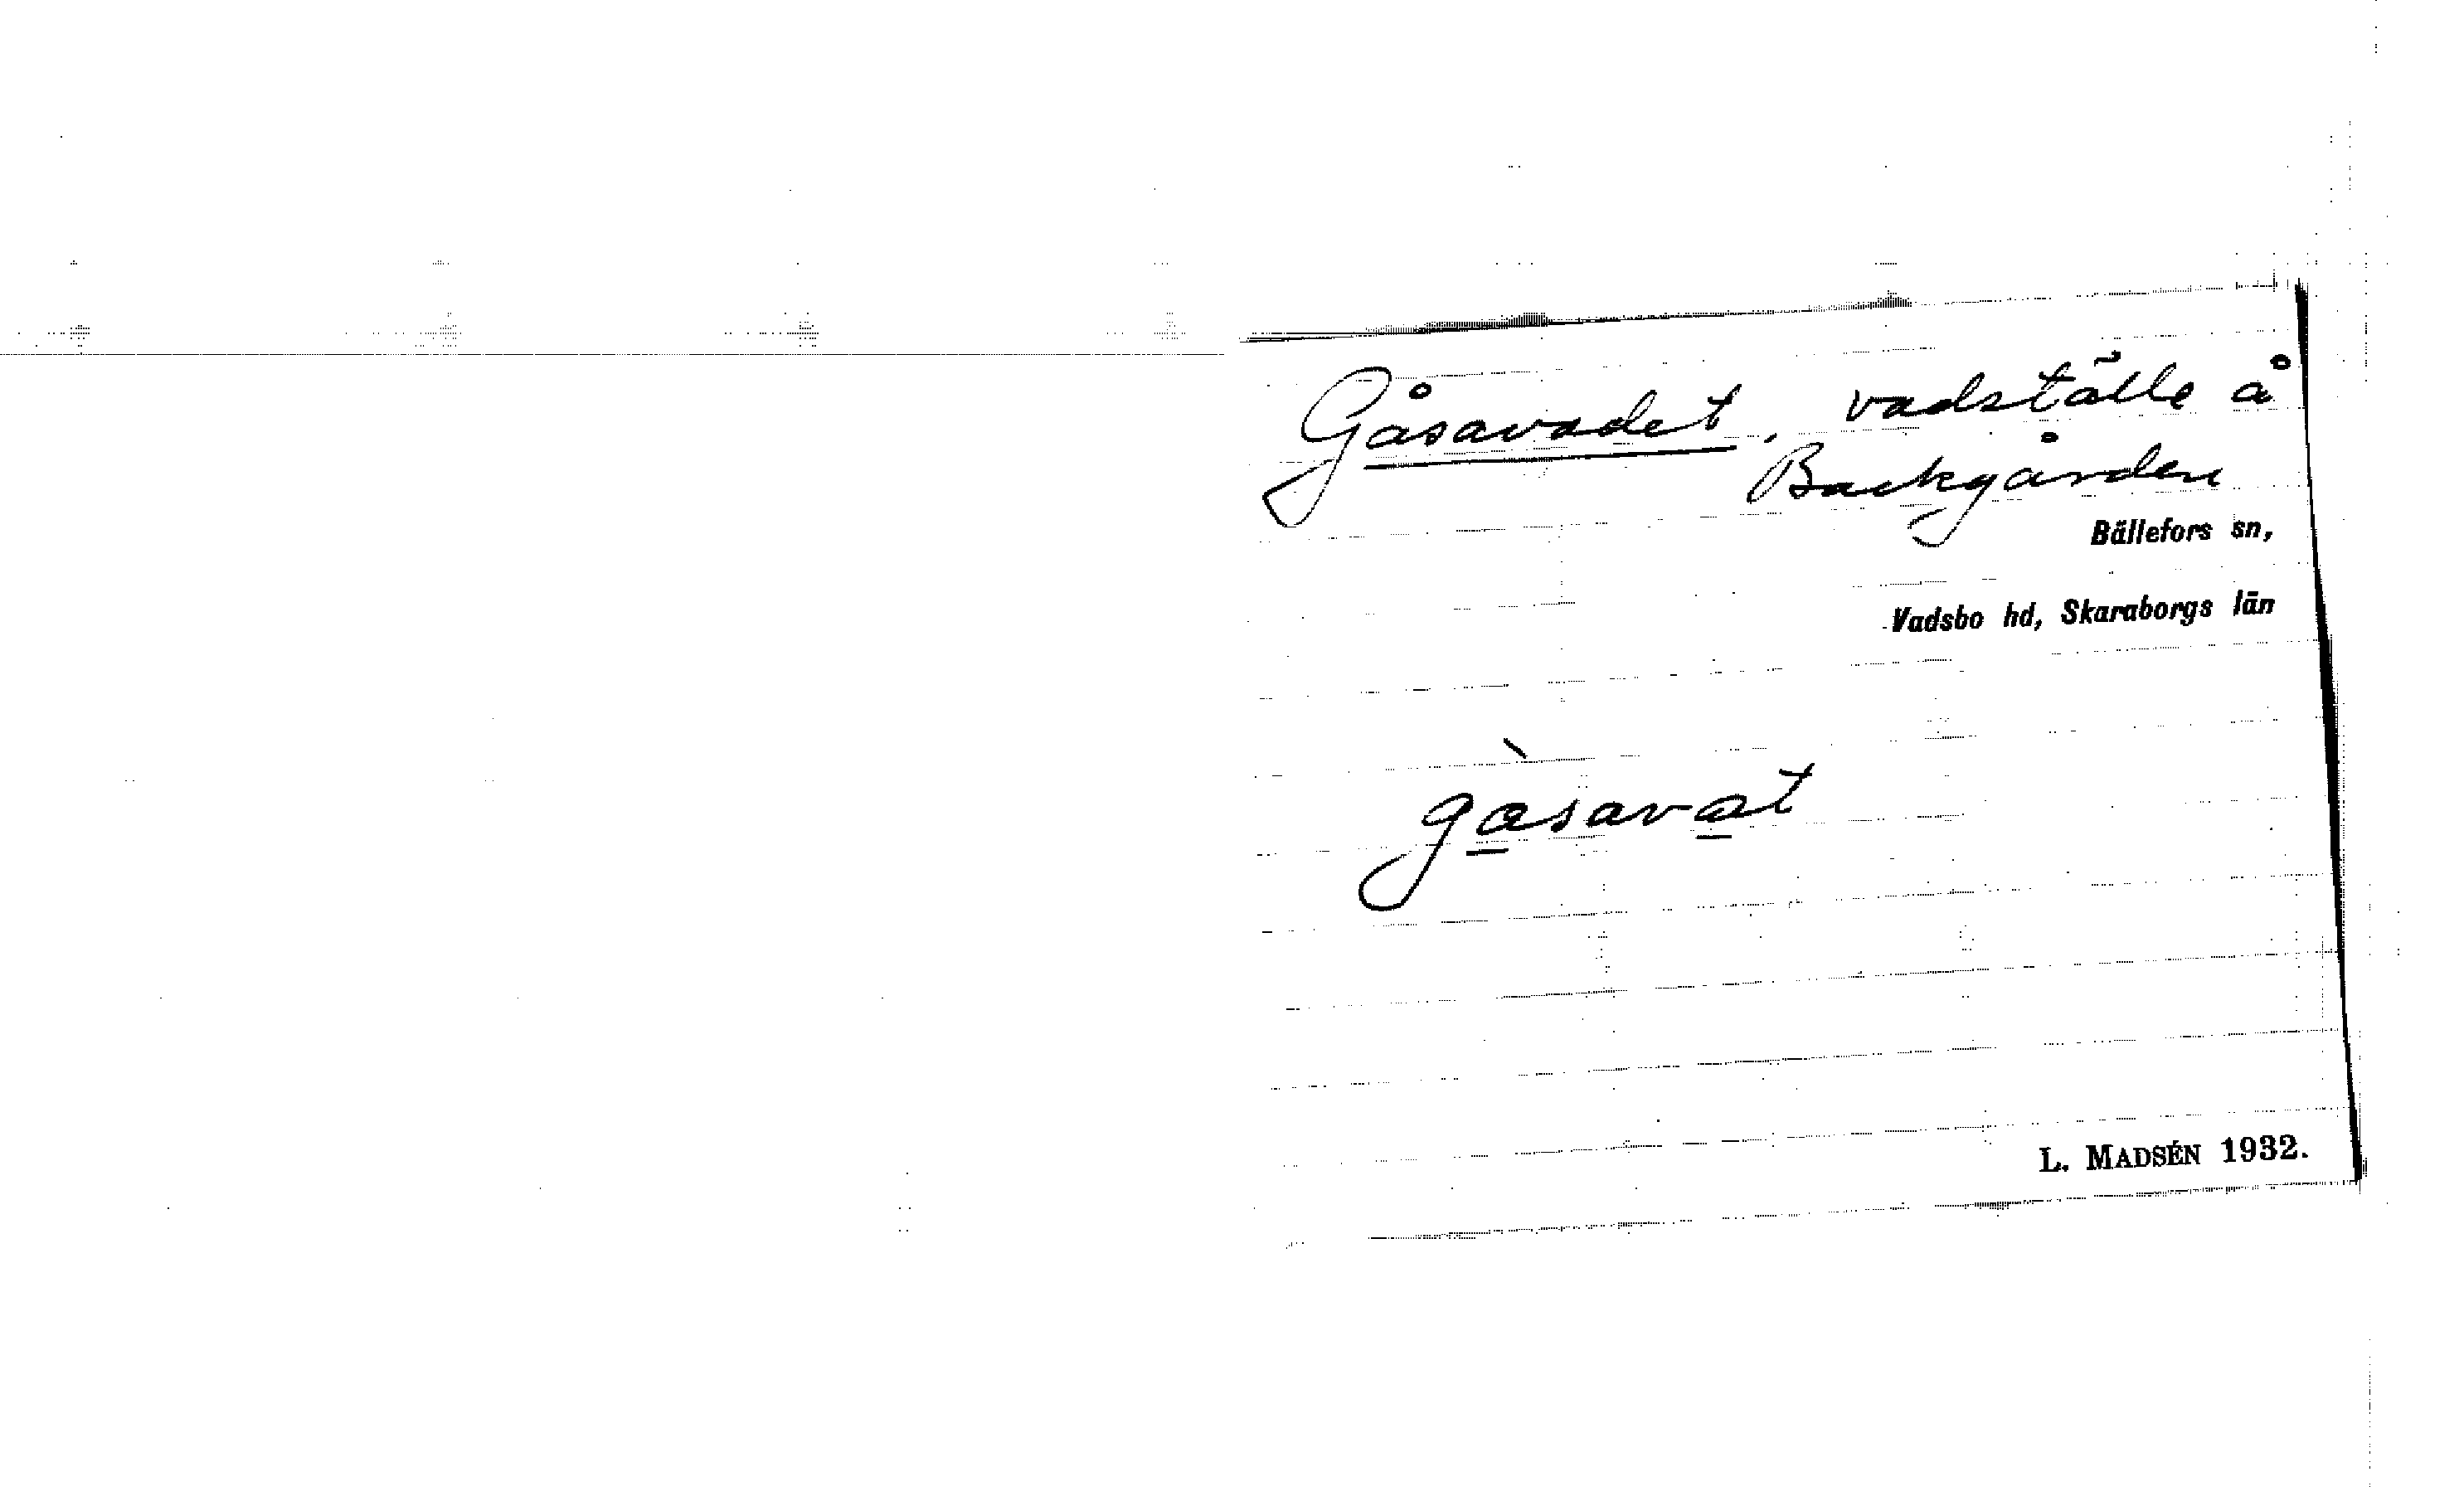 Gåsavadet, vadställe å
Backgården
Bällefors sn,
Vadsbo hd, Skaraborgs län
gàsavat
L. MADSÉN 1932.